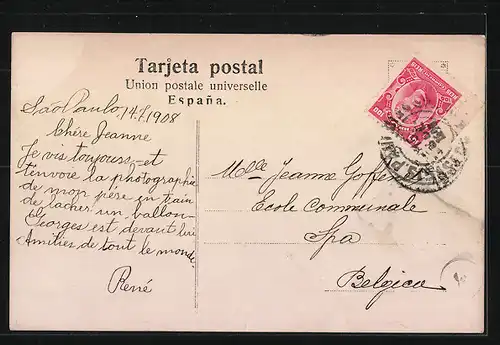 Tarjeta postal
Union postale universelle
España.
São Paulo 14/1/1908
Chère Jeanne
Je vis toujours et
t'envoie la photographie
de mon père en train
de lacher un ballon
Georges est devant lui
Amitiés de tout le monde
René
Mlle Jeanne
Ecole Communale
Spa
Belgica